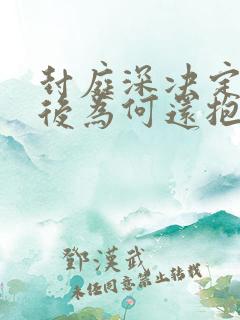 封庭深決定
後為何還抱
鄧漢武
未經同意禁止轉載